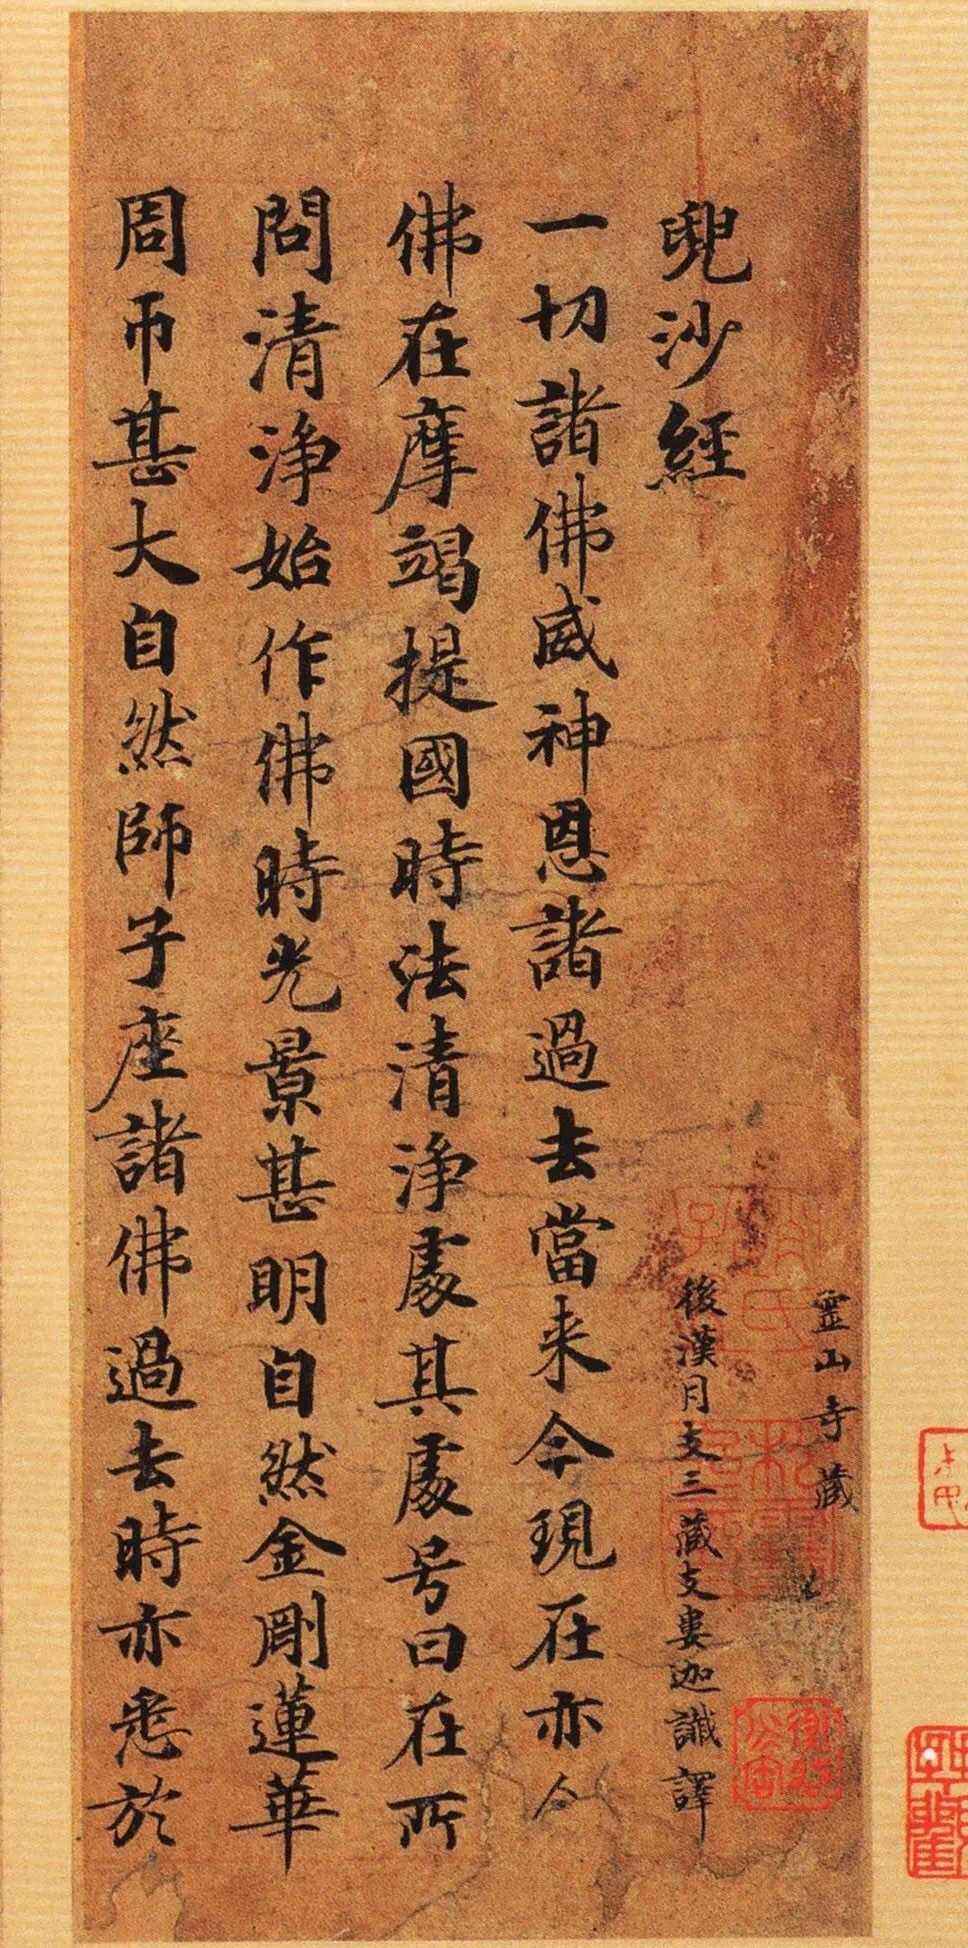 靈山寺藏
兜沙經
後漢月支三藏支婁迦讖譯
一切諸佛威神恩諸過去當来今現在亦尒
佛在摩竭提國時法清浄處其處号曰在所
問清浄始作佛時光景甚明自然金剛蓮華
周帀甚大自然師子座諸佛過去時亦悉於